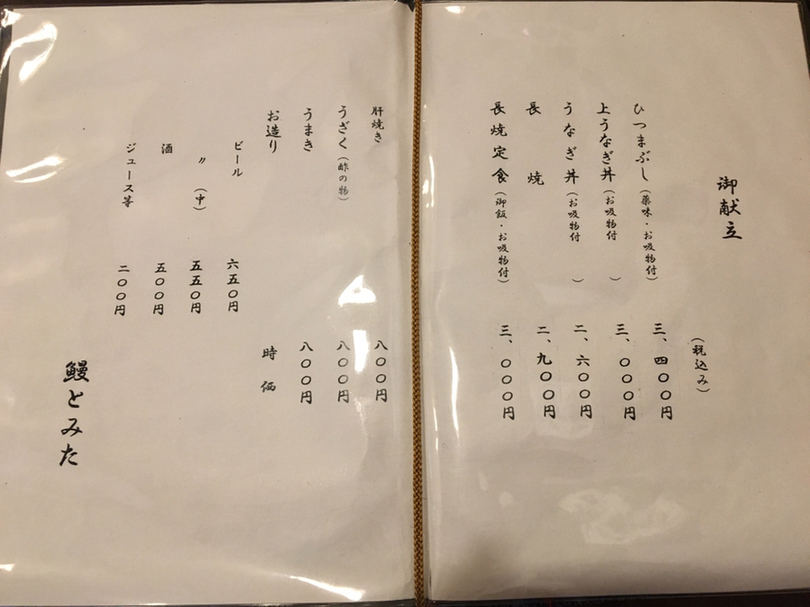 御献立
(税込み)
ひつまぶし(薬味・お吸物付) 三、四〇〇円
上うなぎ丼(お吸物付) 三、〇〇〇円
うなぎ丼(お吸物付) 二、六〇〇円
長焼 二、九〇〇円
長焼定食(御飯・お吸物付) 三、〇〇〇円
肝焼き 八〇〇円
うざく(酢の物) 八〇〇円
うまき 八〇〇円
お造り 時価
ビール 六五〇円
〃(中) 五五〇円
酒 五〇〇円
ジュース等 二〇〇円
鰻とみた